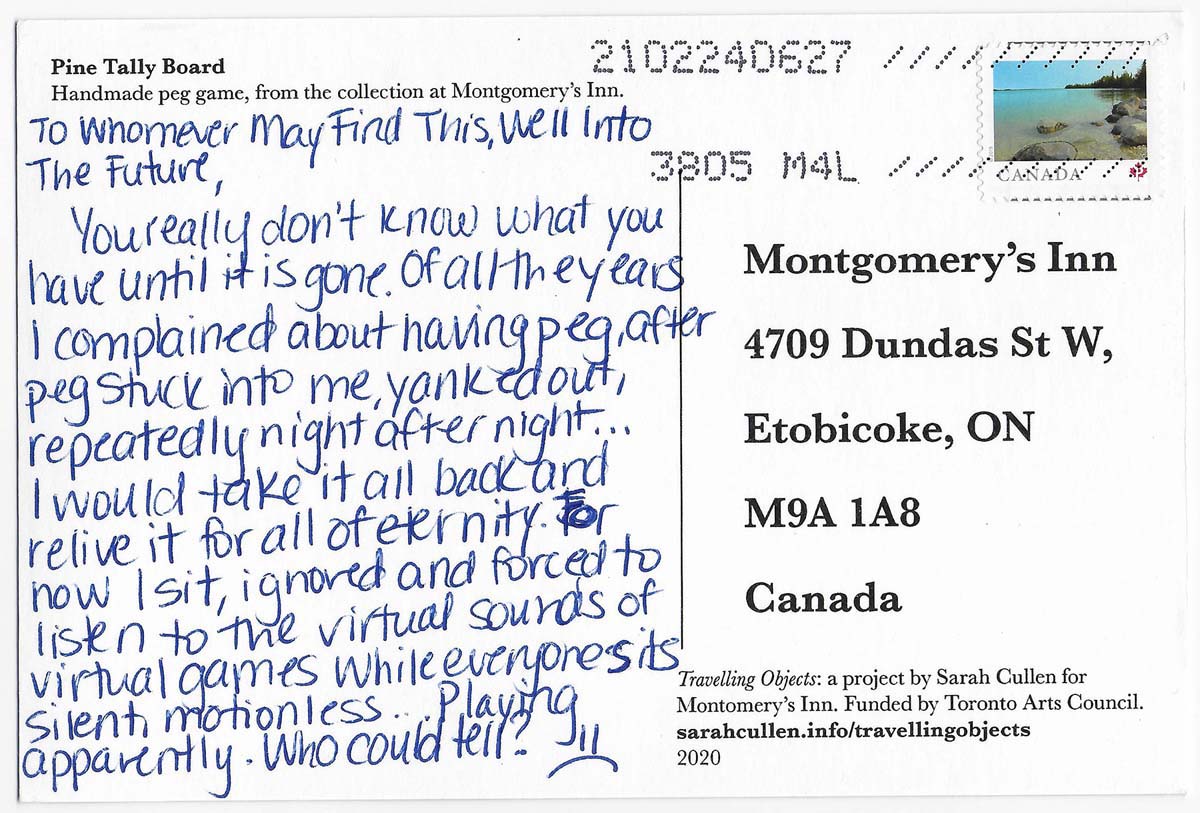 Pine Tally Board
Handmade peg game, from the collection at Montgomery's Inn.
2102240627
3805 M4L
CANADA
P
To Whomever May Find This, Well Into
The Future,
You really don't know what you
have until it is gone. Of all the years
I complained about having peg, after
peg stuck into me, yanked out,
repeatedly night after night...
I would take it all back and
relive it for all of eternity. For
now I sit, ignored and forced to
listen to the virtual sounds of
virtual games while everyone sits
silent, motionless... Playing
apparently. Who could tell?
Montgomery's Inn
4709 Dundas St W,
Etobicoke, ON
M9A 1A8
Canada
Travelling Objects: a project by Sarah Cullen for
Montomery's Inn. Funded by Toronto Arts Council.
sarahcullen.info/travellingobjects
2020